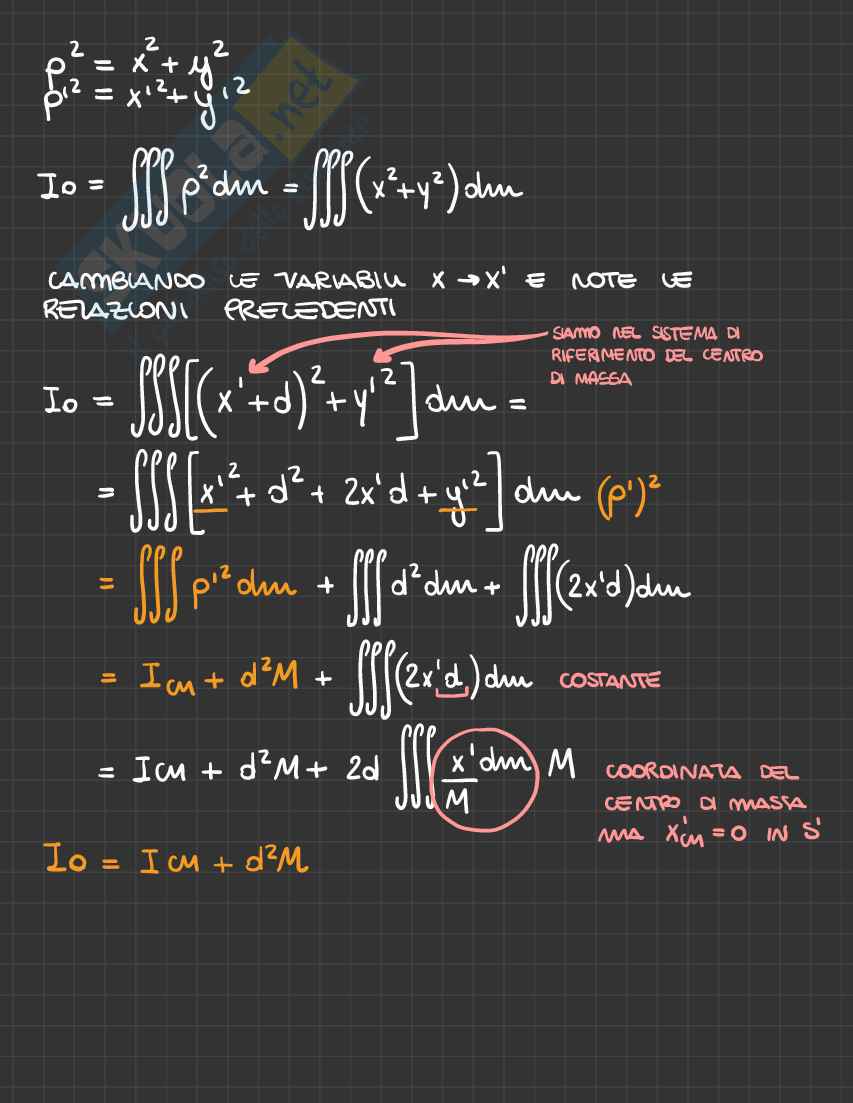 ρ² = x² + y²
ρ'² = x'² + y'²
Io = ∭ρ²dm = ∭(x²+y²)dm
CAMBIANDO LE VARIABILI X → X' E NOTE LE
RELAZIONI PRECEDENTI
SIAMO NEL SISTEMA DI
RIFERIMENTO DEL CENTRO
DI MASSA
Io = ∭[(x'+d)² + y'²] dm =
= ∭[x'² + d² + 2x'd + y'²] dm (ρ')²
= ∭ρ'²dm + ∭d²dm + ∭(2x'd)dm
= ICM + d²M + ∭(2x'd)dm COSTANTE
= ICM + d²M + 2d ∭ x'dm/M M
COORDINATA DEL
CENTRO DI MASSA
MA X'CM = 0 IN S'
Io = ICM + d²M
SKUOLA.net